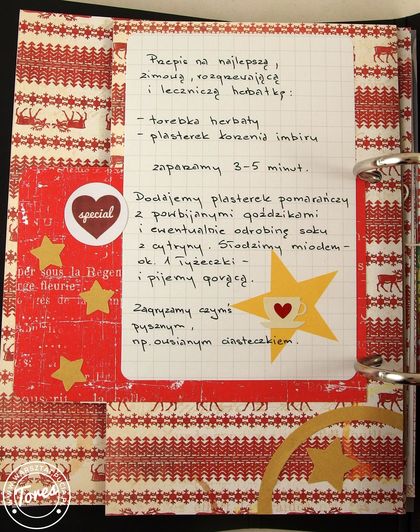 Przepis na najlepszą,
zimową, rozgrzewającą
i leczniczą herbatkę:
- torebka herbaty
- plasterek korzenia imbiru
zaparzamy 3-5 minut.
Dodajemy plasterek pomarańczy
z powbijanymi goździkami
i ewentualnie odrobinę soku
z cytryny. Słodzimy miodem -
ok. 1 łyżeczki -
i pijemy gorącą.
Zagryzamy czymś
pysznym,
np. owsianym ciasteczkiem.
special
per sous la Régen
rge-fleurie.
Tores